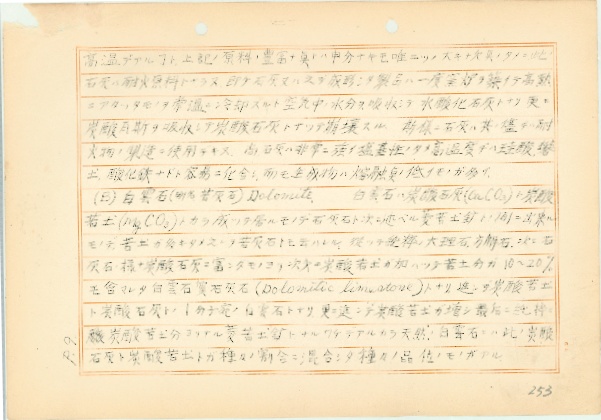 高温デアル事ト上記ノ原料ノ豊富ナ点ハ申分ナキモ唯一ツノ大キナ欠点ノタメニ此ノ
石灰ハ耐火原料トナラヌ 即チ石灰
一度室炉ヲ 高熱
ニアタッタモノヲ常温ニ冷却スルト空気中ノ水分ヲ吸収シテ水酸化石灰トナリ更ニ
炭酸瓦斯ヲ吸収シテ炭酸石灰トナリテ崩壊スル 石灰ハ其ノ儘デハ耐
火物ノ製造ニ使用デキヌ 尚石灰ハ非常ニ強イ塩基性ノタメ高温度デハ珪酸、礬
土、酸化鉄ナドト容易ニ化合シ而モ生成物ハ熔融点ノ低イモノガ多イ
(ロ) 白雲石(苦灰石) Dolomite. 白雲石ハ炭酸石灰(CaCO₃)ト炭酸
苦土(MgCO₃)トカラ成ツテ居ルモノデ石灰石ト次ニ述ベル菱苦土鉱トノ間ニ出来ル
モノデ苦土ガ 苦灰石トモ云ハレル 従ツテ 大理石、方解石、次ニ石
灰石ノ様ナ炭酸石灰ニ富ンダモノヨリ次第ニ炭酸苦土ガ加ハツテ苦土分ガ10~20%
モ含マレタ白雲石質石灰石(Dolomitic limestone)トナリ進ンデ炭酸苦土
ト炭酸石灰ト1分子宛ノ白雲石トナリ更ニ進ンデ炭酸苦土ガ増シ最后ニ純粋ニ
炭酸苦土分ヨリナル菱苦土鉱トナルワケデアルカラ天然ノ白雲石ニハ此ノ炭酸
石灰ト炭酸苦土トガ種々ノ割合ニ混合シタ種々ノ品位ノモノガアル
253